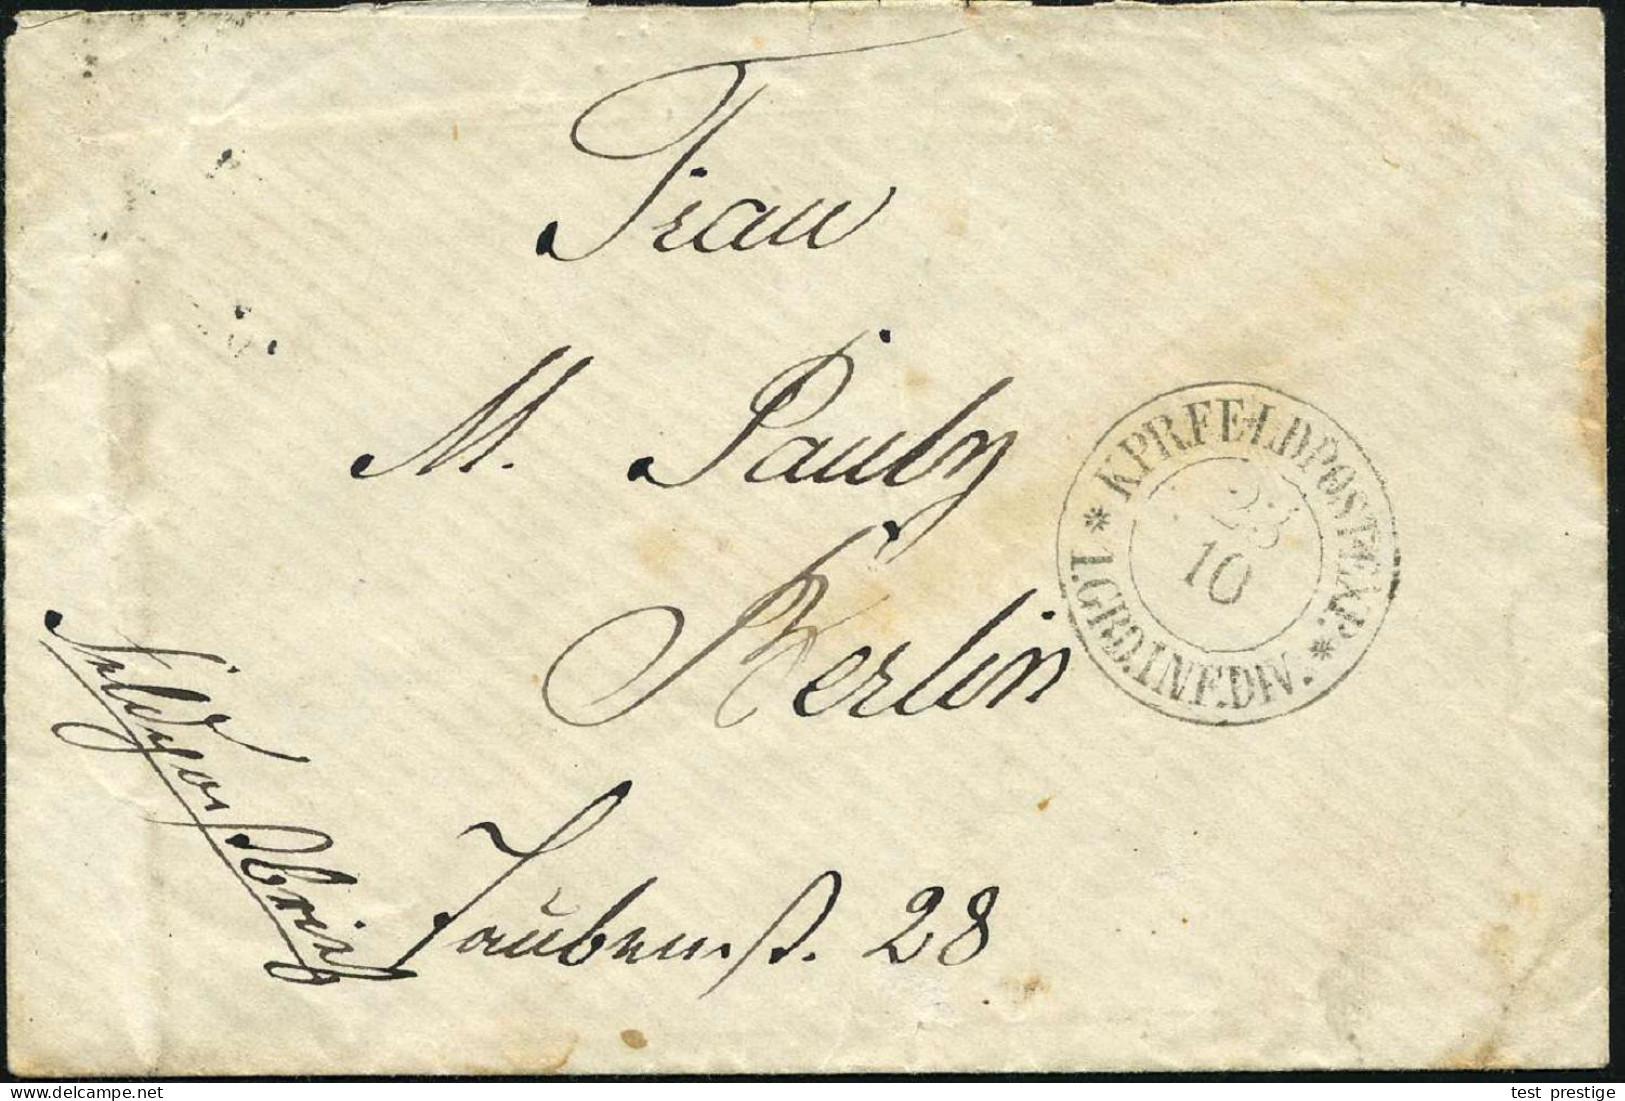 Frau
M. Pauly
Berlin
Taubenst. 28
Feldpostbrief
* K.PR.FELDPOST-EXP. *
23
10
1.GRD.INF.DIV.
test prestige